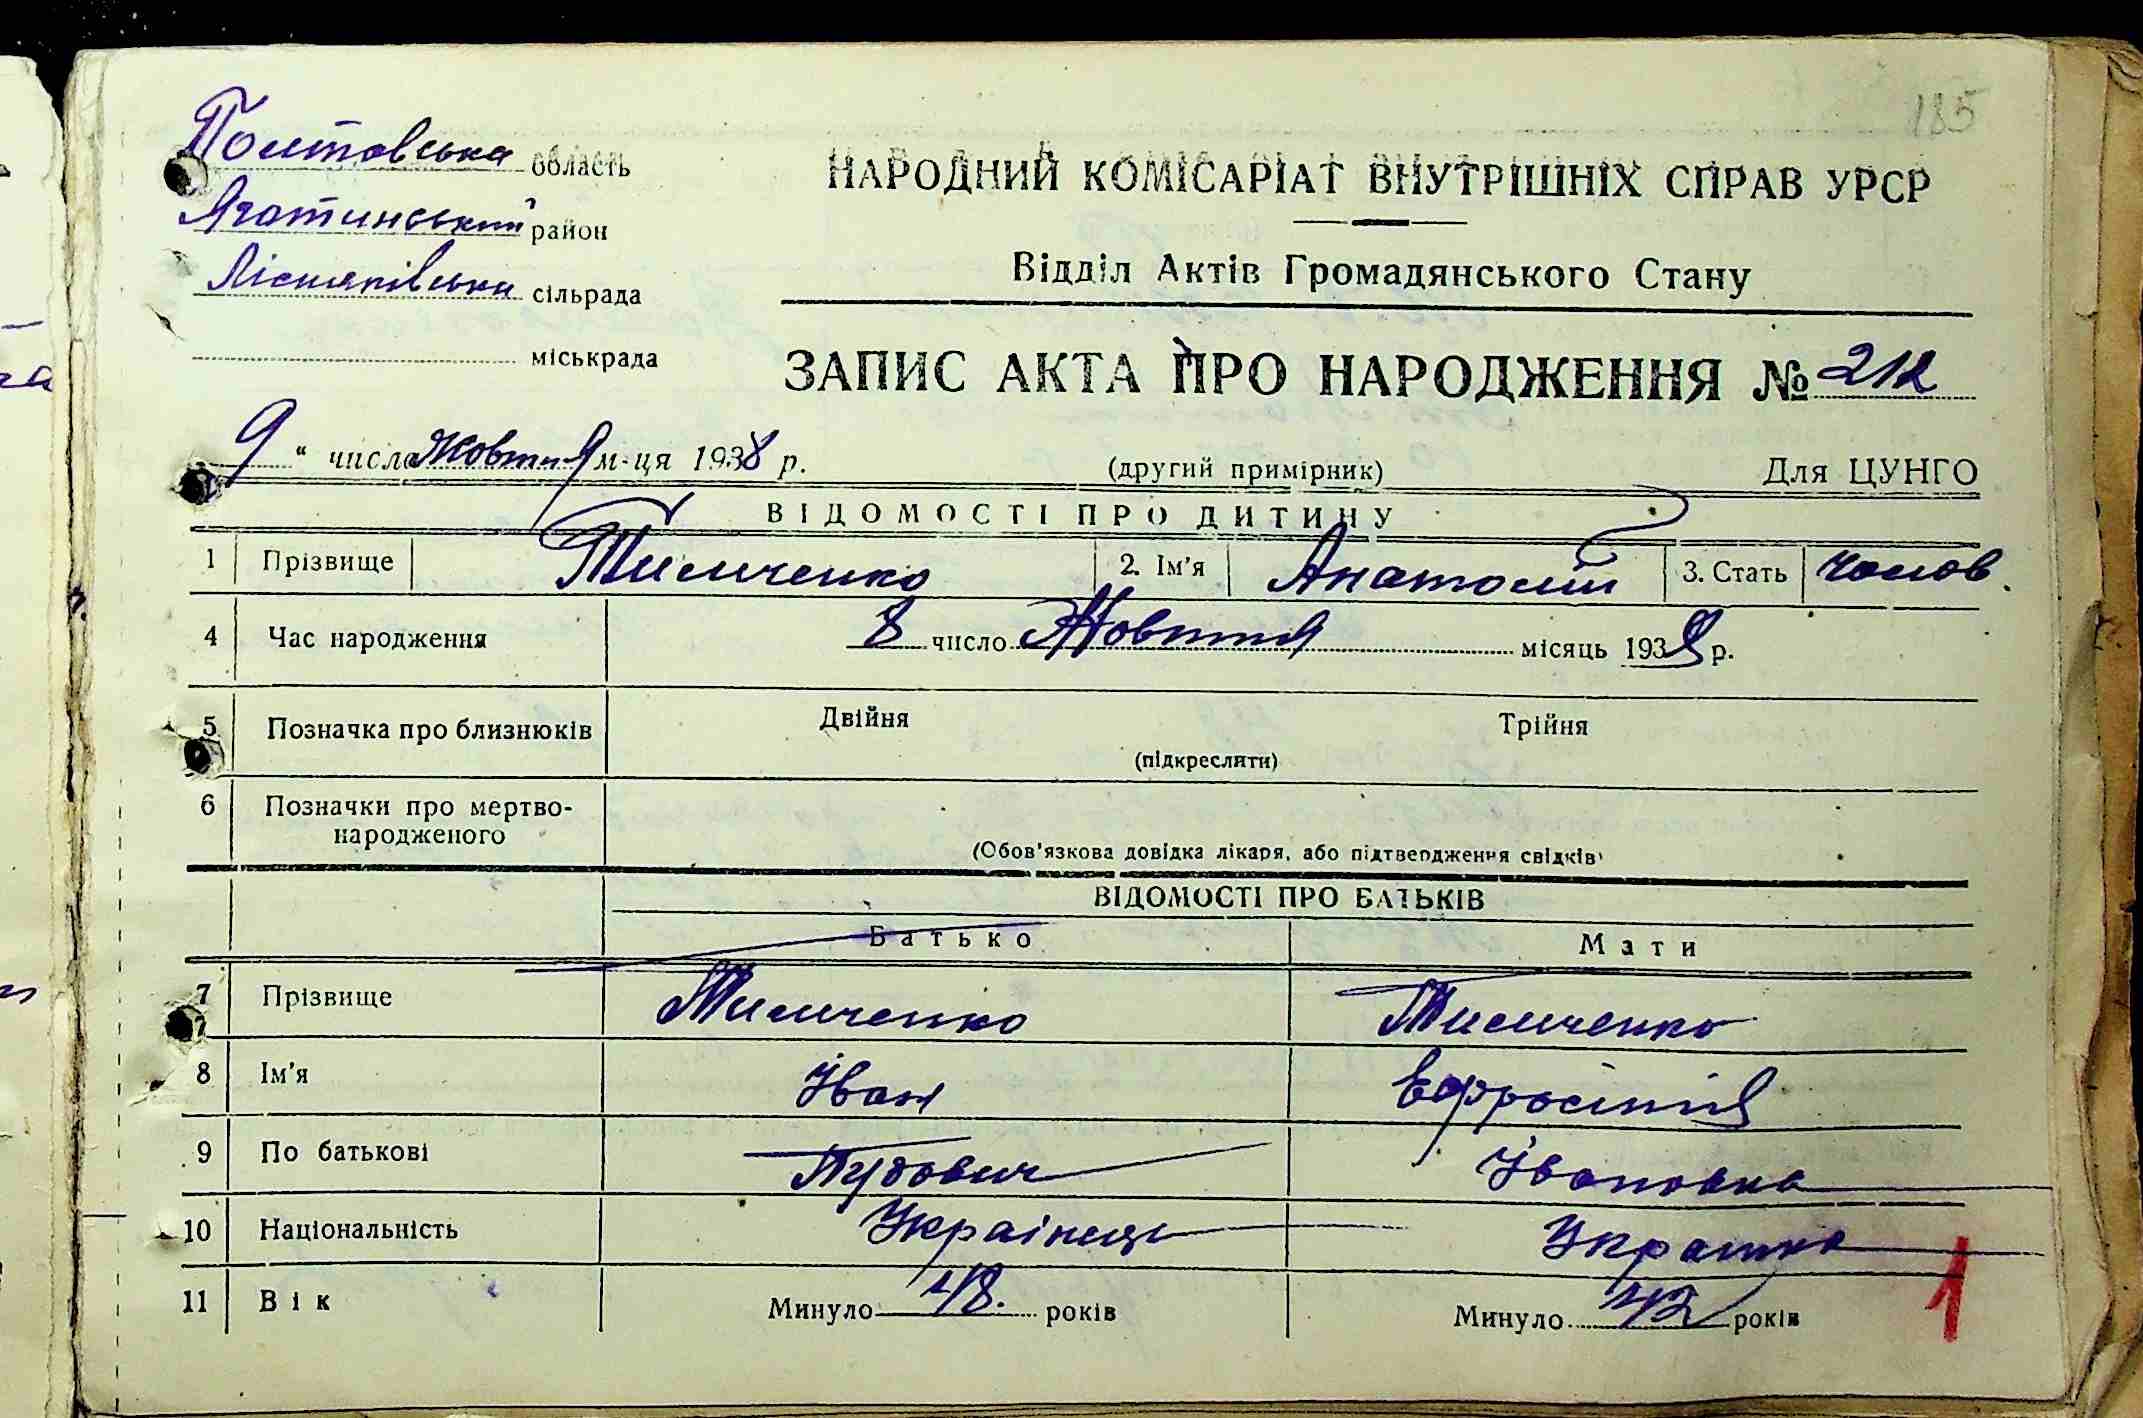 185
Полтовська область
Яготинський район
Лісняківська сільрада
міськрада
НАРОДНИЙ КОМІСАРІАТ ВНУТРІШНІХ СПРАВ УРСР
Відділ Актів Громадянського Стану
ЗАПИС АКТА ПРО НАРОДЖЕННЯ № 212
9 " числа Жовтня м-ця 1938 р.
(другий примірник)
Для ЦУНГО
ВІДОМОСТІ ПРО ДИТИНУ
1 Прізвище Тимченко 2. Ім'я Анатолій 3. Стать чолов.
4 Час народження 8 число Жовтня місяць 1938 р.
5 Позначка про близнюків Двійня Трійня
(підкреслити)
6 Позначки про мертво-
народженого
(Обов'язкова довідка лікаря, або підтвердження свідків)
ВІДОМОСТІ ПРО БАТЬКІВ
Батько Мати
7 Прізвище Тимченко Тимченко
8 Ім'я Іван Ефросінія
9 По батькові Тудович Івановна
10 Національність Українець Украінка
11 Вік Минуло 48. років Минуло 42 років
1